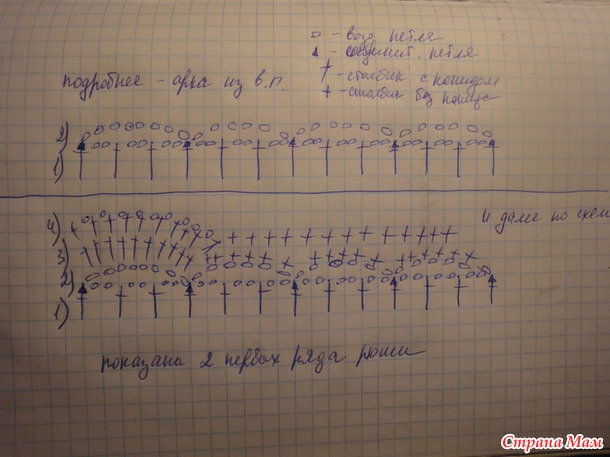 о - возд. петля
- соединит. петля
- столбик с накидом
+ - столбик без накида
подробнее - арка из в.п.
2)
1)
И далее по схем
4)
3)
2)
1)
показаны 2 первых ряда рюши
Страна Мам